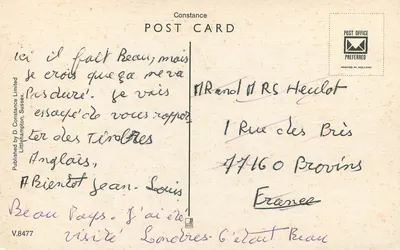 Constance
POST CARD
POST OFFICE
PREFERRED
PRINTED IN HOLLAND
ici il fait Beau, mais
je crois que ça ne va
pas duré. je vais
essayé de vous rappor-
ter des Timbres
Anglais,
A Bientot Jean-Louis
Beau Pays. J'ai été
visité Londres. C'était Beau
M R and M RS Heulot
1 Rue des Brès
77160 Provins
France
Published by D. Constance Limited
Littlehampton, Sussex.
V.8477